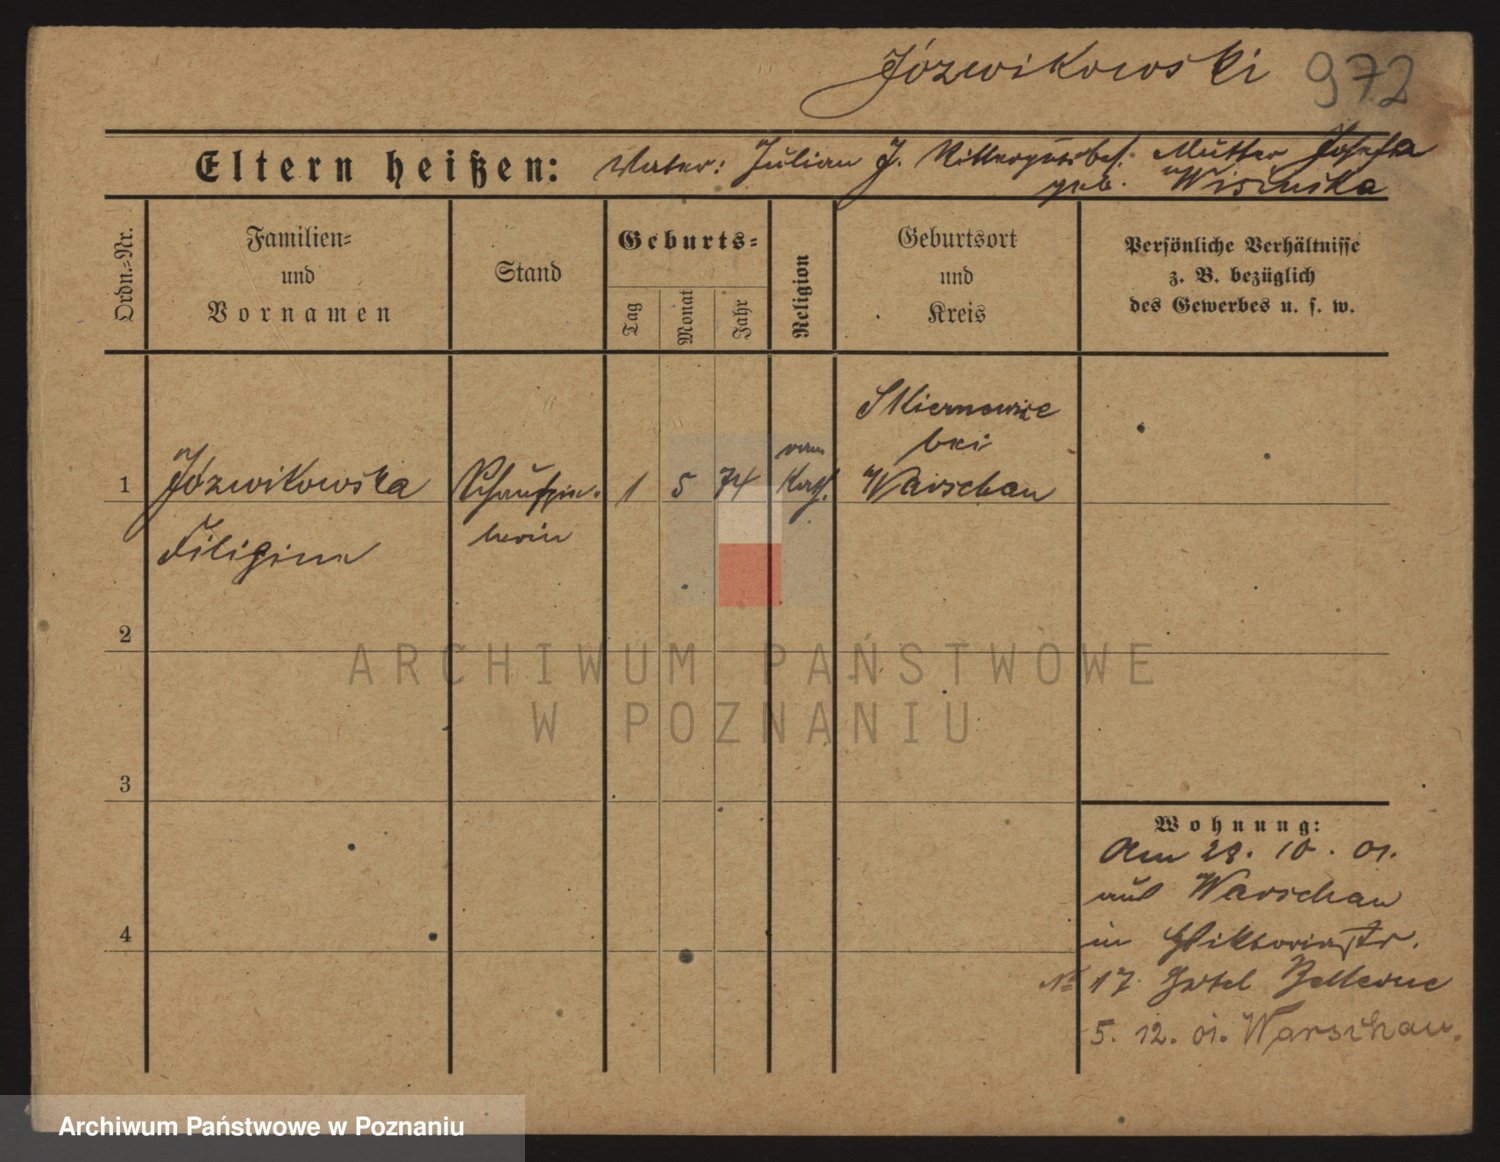 Józwikowski 972
Eltern heißen: Vater: Julian J. Rittergutsbes. Mutter Josefa
geb. Wisinska
Ordn.-Nr.
Familien-
und
Vornamen
Stand
Geburts-
Tag
Monat
Jahr
Religion
Geburtsort
und
Kreis
Persönliche Verhältnisse
z. B. bezüglich
des Gewerbes u. s. w.
1
Józwikowska
Schauspie-
lerin
1 5 74
Kath.
Skiernewice
bei
Warschau
2
3
4
Wohnung:
Am 28. 10. 01.
aus Warschau
in Viktoriastr.
No 17 Hotel Bellevue
5. 12. 01. Warschau.
ARCHIWUM PAŃSTWOWE
W POZNANIU
Archiwum Państwowe w Poznaniu